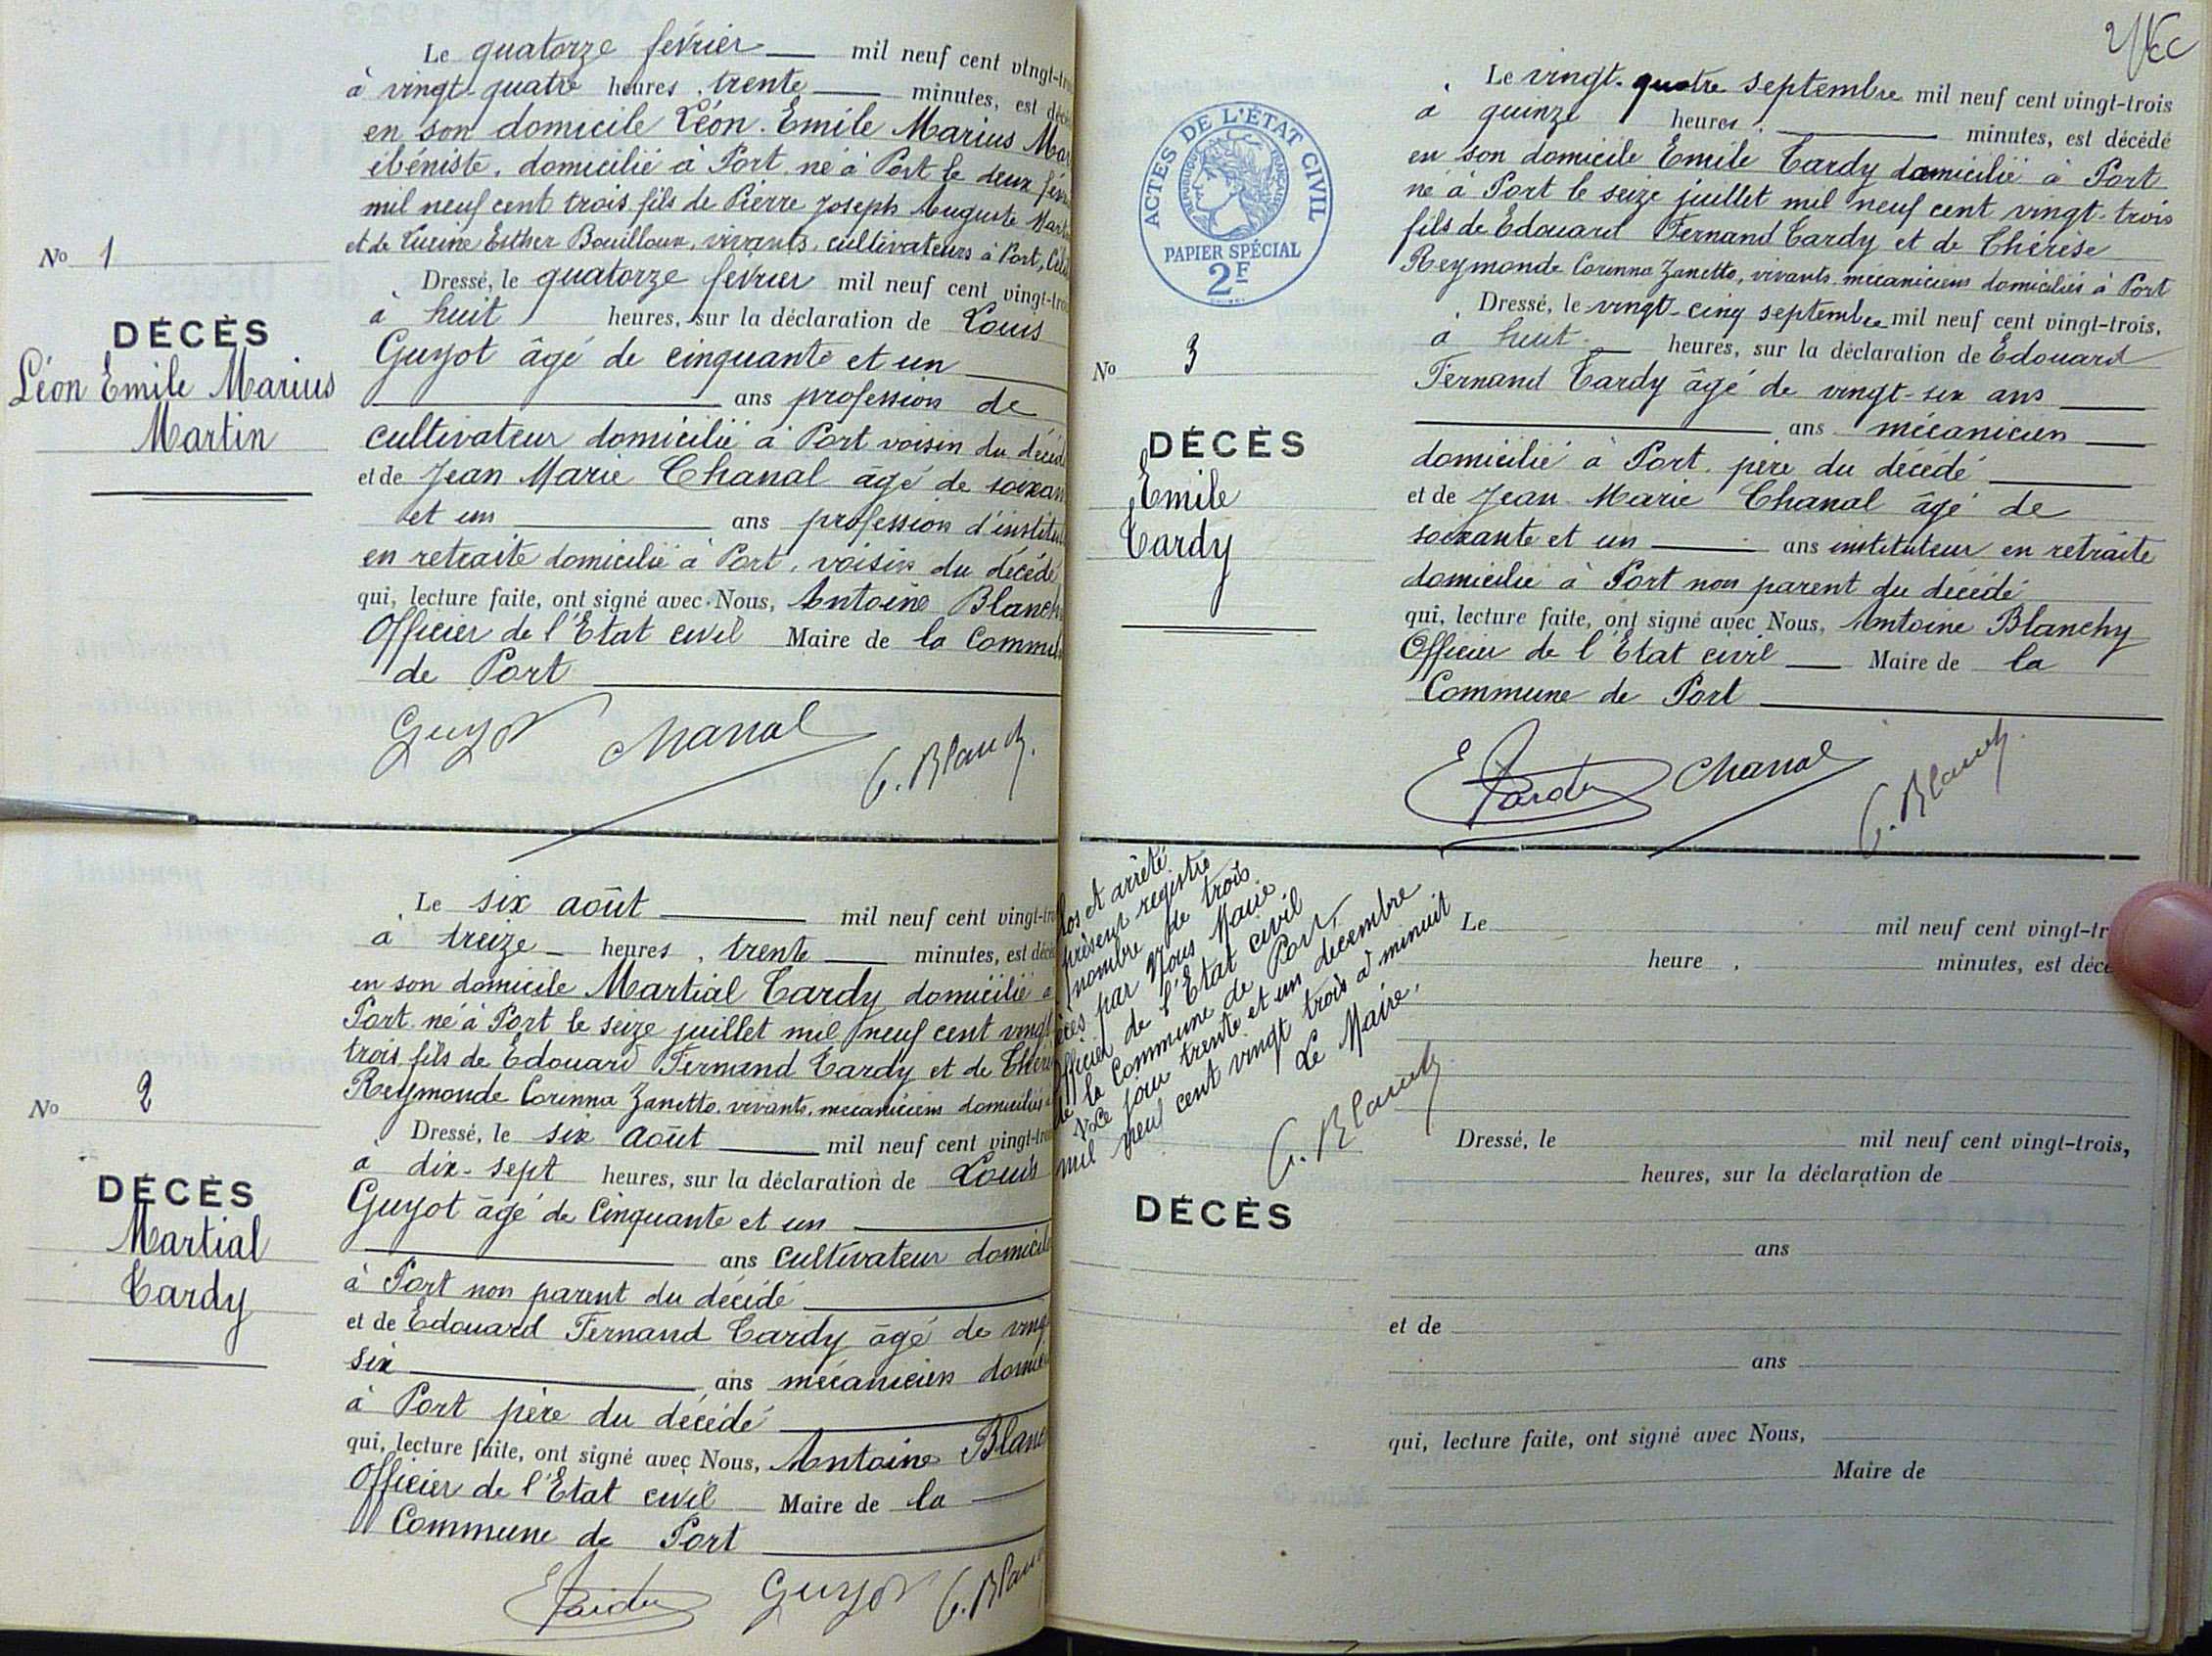 Le quatorze février mil neuf cent vingt-tro
à vingt-quatre heures, trente minutes, est décé
en son domicile Léon Emile Marius Mar
ébéniste, domicilié à Port né à Port le deux fév
mil neuf cent trois fils de Pierre Joseph Auguste Mart
et de Lucine Esther Bouilloux, vivants, cultivateurs à Port, Cél
Nº 1
Dressé, le quatorze février mil neuf cent vingt-tro
à huit heures, sur la déclaration de Louis
DÉCÈS
Léon Emile Marius
Martin
Guyot âgé de cinquante et un
ans profession de
cultivateur domicilié à Port voisin du décéd
et de Jean Marie Chanal âgé de soixan
et un ans profession d'institu
en retraite domicilié à Port, voisin du décédé
qui, lecture faite, ont signé avec Nous, Antoine Blanch
Officier de l'Etat civil Maire de la Commun
de Port
Guyot Chanal A. Blanchy
Le six août mil neuf cent vingt-tro
à treize heures, trente minutes, est décé
en son domicile Martial Tardy domicilié à
Port né à Port le seize juillet mil neuf cent vingt
trois fils de Edouard Fernand Tardy et de Thérè
Reymonde Corinna Zanetto, vivants, mécaniciens domiciliés à
Nº 2
Dressé, le six août mil neuf cent vingt-tro
à dix-sept heures, sur la déclaration de Louis
DÉCÈS
Martial
Tardy
Guyot âgé de Cinquante et un
ans cultivateur domicil
à Port non parent du décédé
et de Edouard Fernand Tardy âgé de ving
six ans mécanicien domici
à Port père du décédé
qui, lecture faite, ont signé avec Nous, Antoine Blanc
Officier de l'Etat civil Maire de la
Commune de Port
E Tardy Guyot A. Blan
ACTES DE L'ÉTAT CIVIL
RÉPUBLIQUE FRANÇAISE
PAPIER SPÉCIAL
2F
Le vingt-quatre septembre mil neuf cent vingt-trois
à quinze heures, minutes, est décédé
en son domicile Emile Tardy domicilié à Port
né à Port le seize juillet mil neuf cent vingt-trois
fils de Edouard Fernand Tardy et de Thérèse
Reymonde Corinna Zanetto, vivants, mécaniciens domiciliés à Port
Dressé, le vingt-cinq septembre mil neuf cent vingt-trois,
à huit heures, sur la déclaration de Edouard
Nº 3
DÉCÈS
Emile
Tardy
Fernand Tardy âgé de vingt-six ans
ans mécanicien
domicilié à Port, père du décédé
et de Jean Marie Chanal âgé de
soixante et un ans instituteur en retraite
domicilié à Port non parent du décédé
qui, lecture faite, ont signé avec Nous, Antoine Blanchy
Officier de l'Etat civil Maire de la
Commune de Port
E Tardy Chanal A. Blanchy
los et arrêté
présent registre
nombre de trois
écès par Nous Maire
Officier de l'Etat civil
de la Commune de Port,
Ce jour trente et un décembre
mil neuf cent vingt trois à minuit
Le Maire,
A. Blanchy
Le mil neuf cent vingt-tr
heure, minutes, est décé
Dressé, le mil neuf cent vingt-trois,
heures, sur la déclaration de
DÉCÈS
ans
et de
ans
qui, lecture faite, ont signé avec Nous,
Maire de